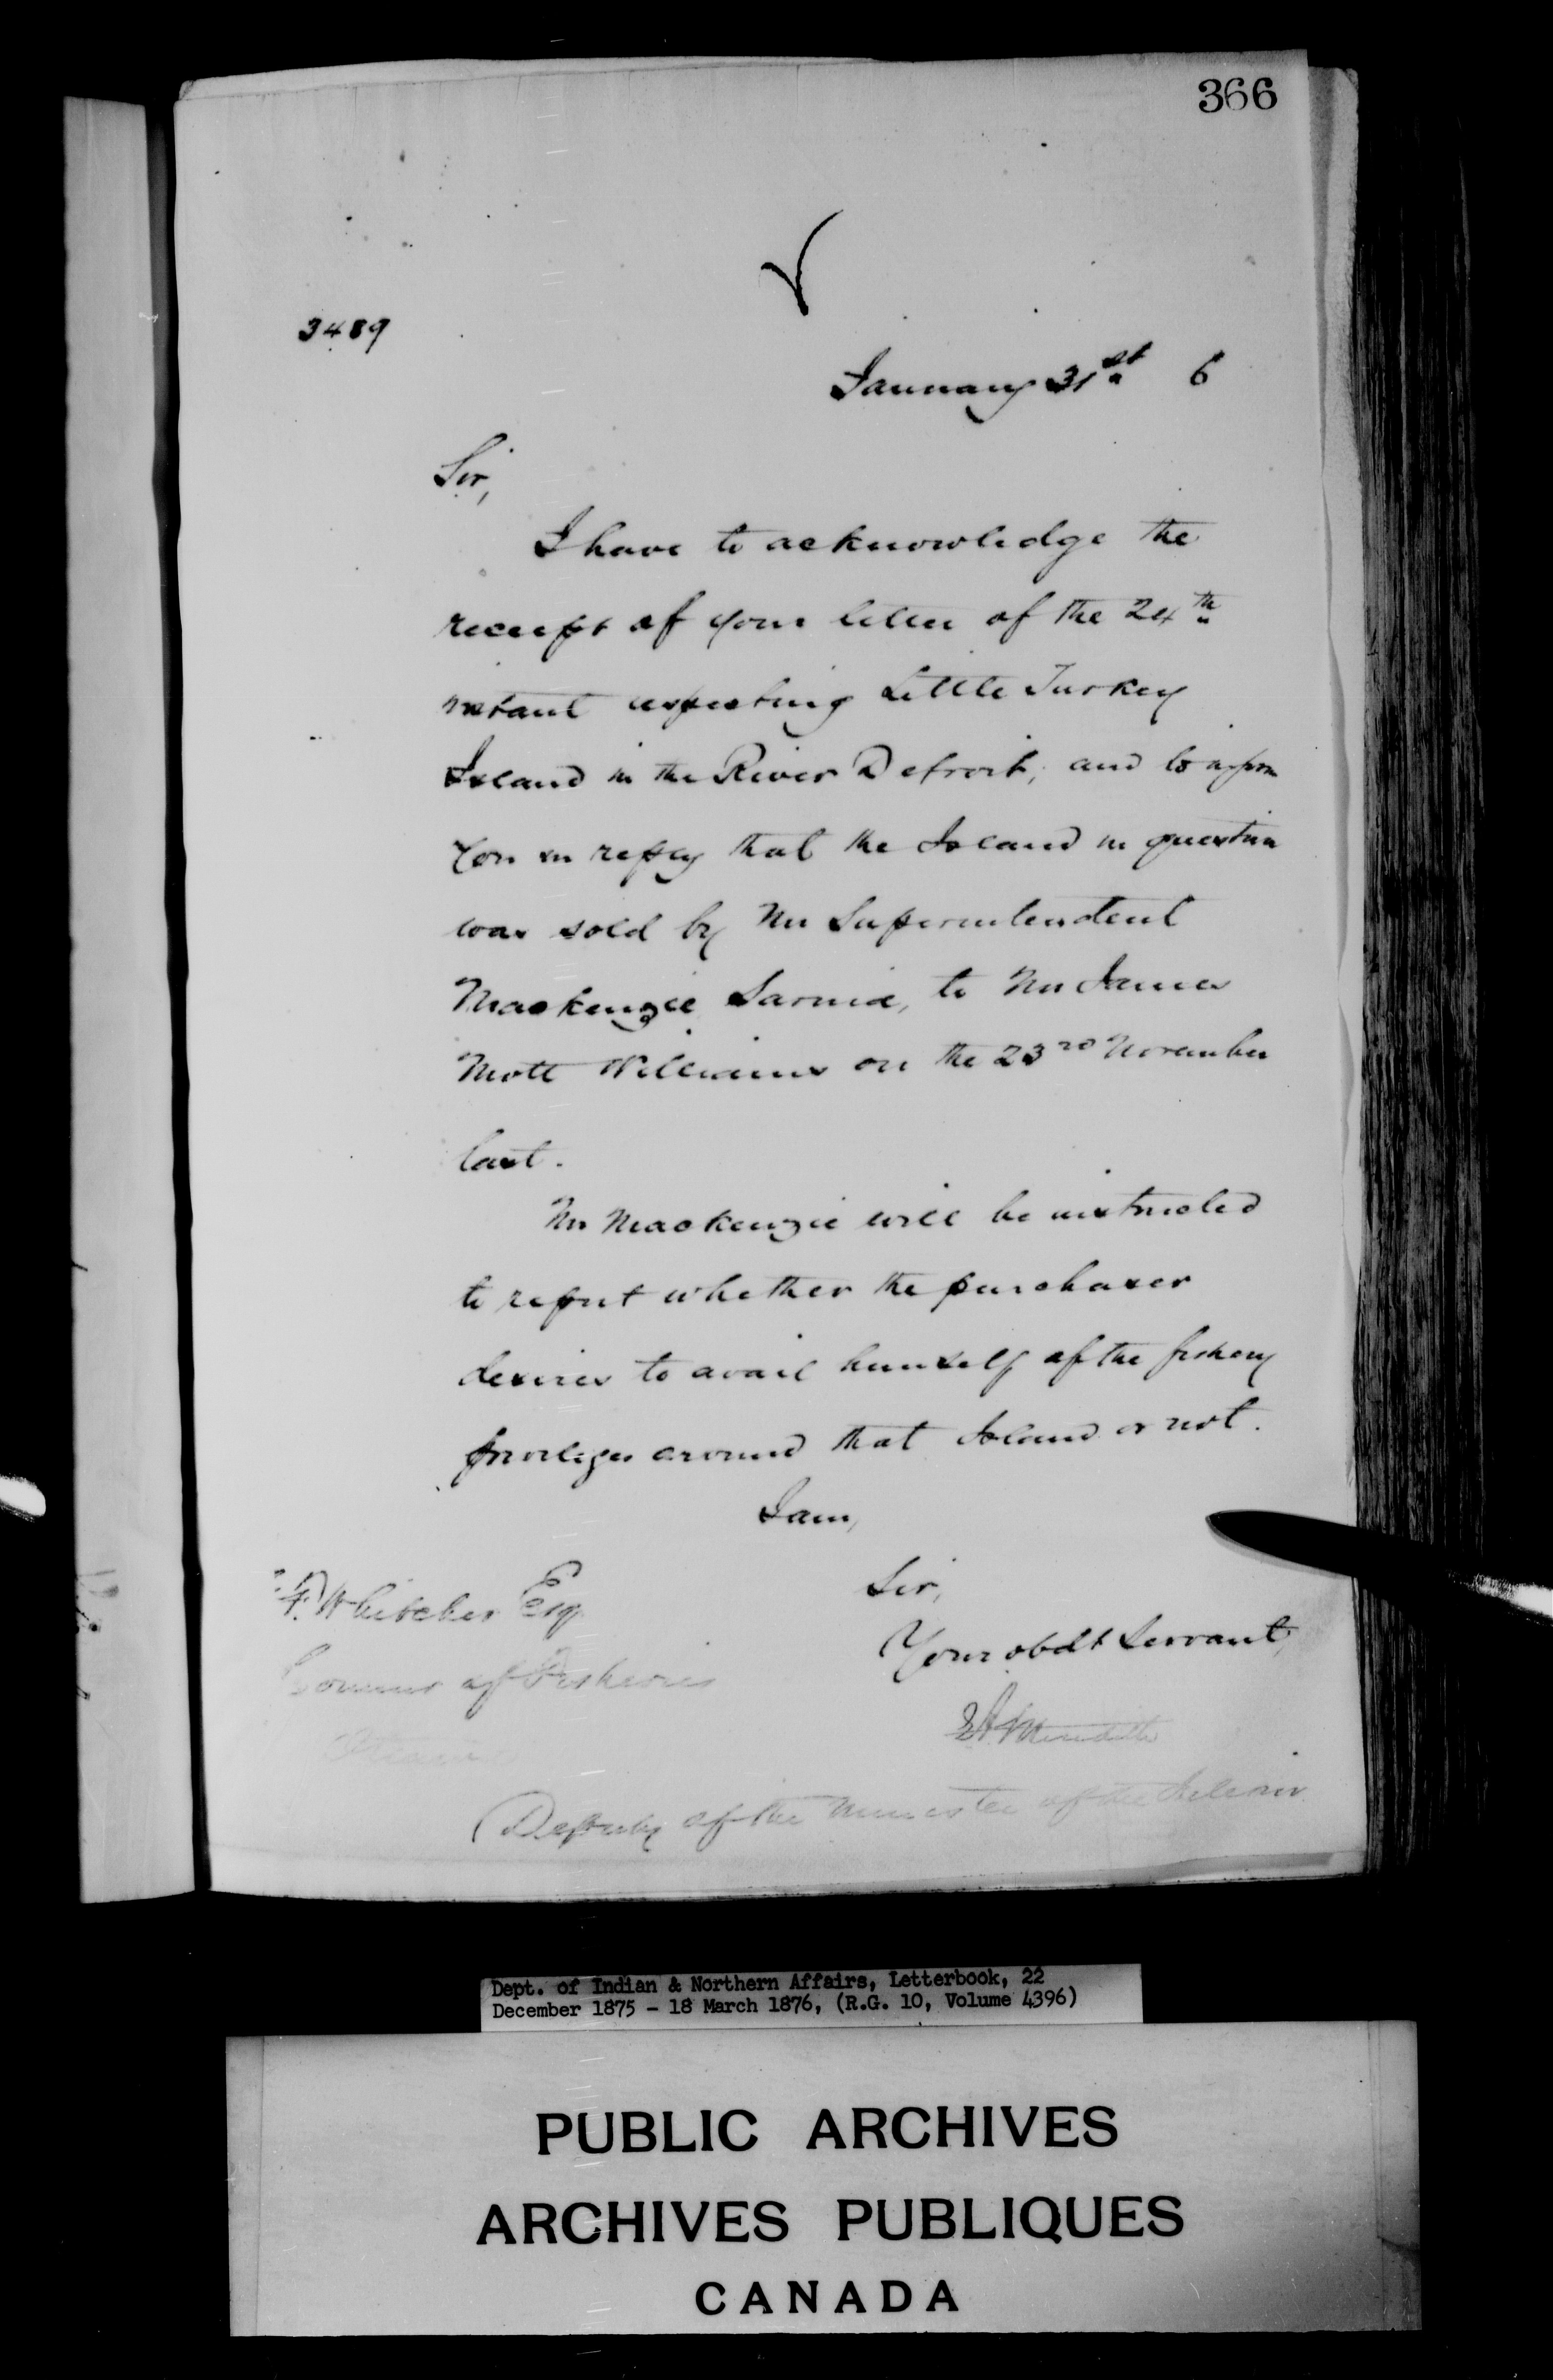 366
3489
January 31st 6
Sir,
I have to acknowledge the
receipt of your letter of the 24th
instant respecting Little Turkey
Island in the River Detroit, and to inform
you in reply that the Island in question
was sold by Mr Superintendent
Mackenzie Sarnia, to Mr James
Mott Williams on the 23rd November
last.
Mr Mackenzie will be instructed
to report whether the purchaser
desires to avail himself of the fishery
privileges around that Island or not.
I am,
Sir,
Your obdt Servant,
F. Whitcher Esq
of Fisheries
Ottawa
E A Meredith
Deputy of the Minister of the Interior
Dept. of Indian & Northern Affairs, Letterbook, 22
December 1875 - 18 March 1876, (R.G. 10, Volume 4396)
PUBLIC ARCHIVES
ARCHIVES PUBLIQUES
CANADA